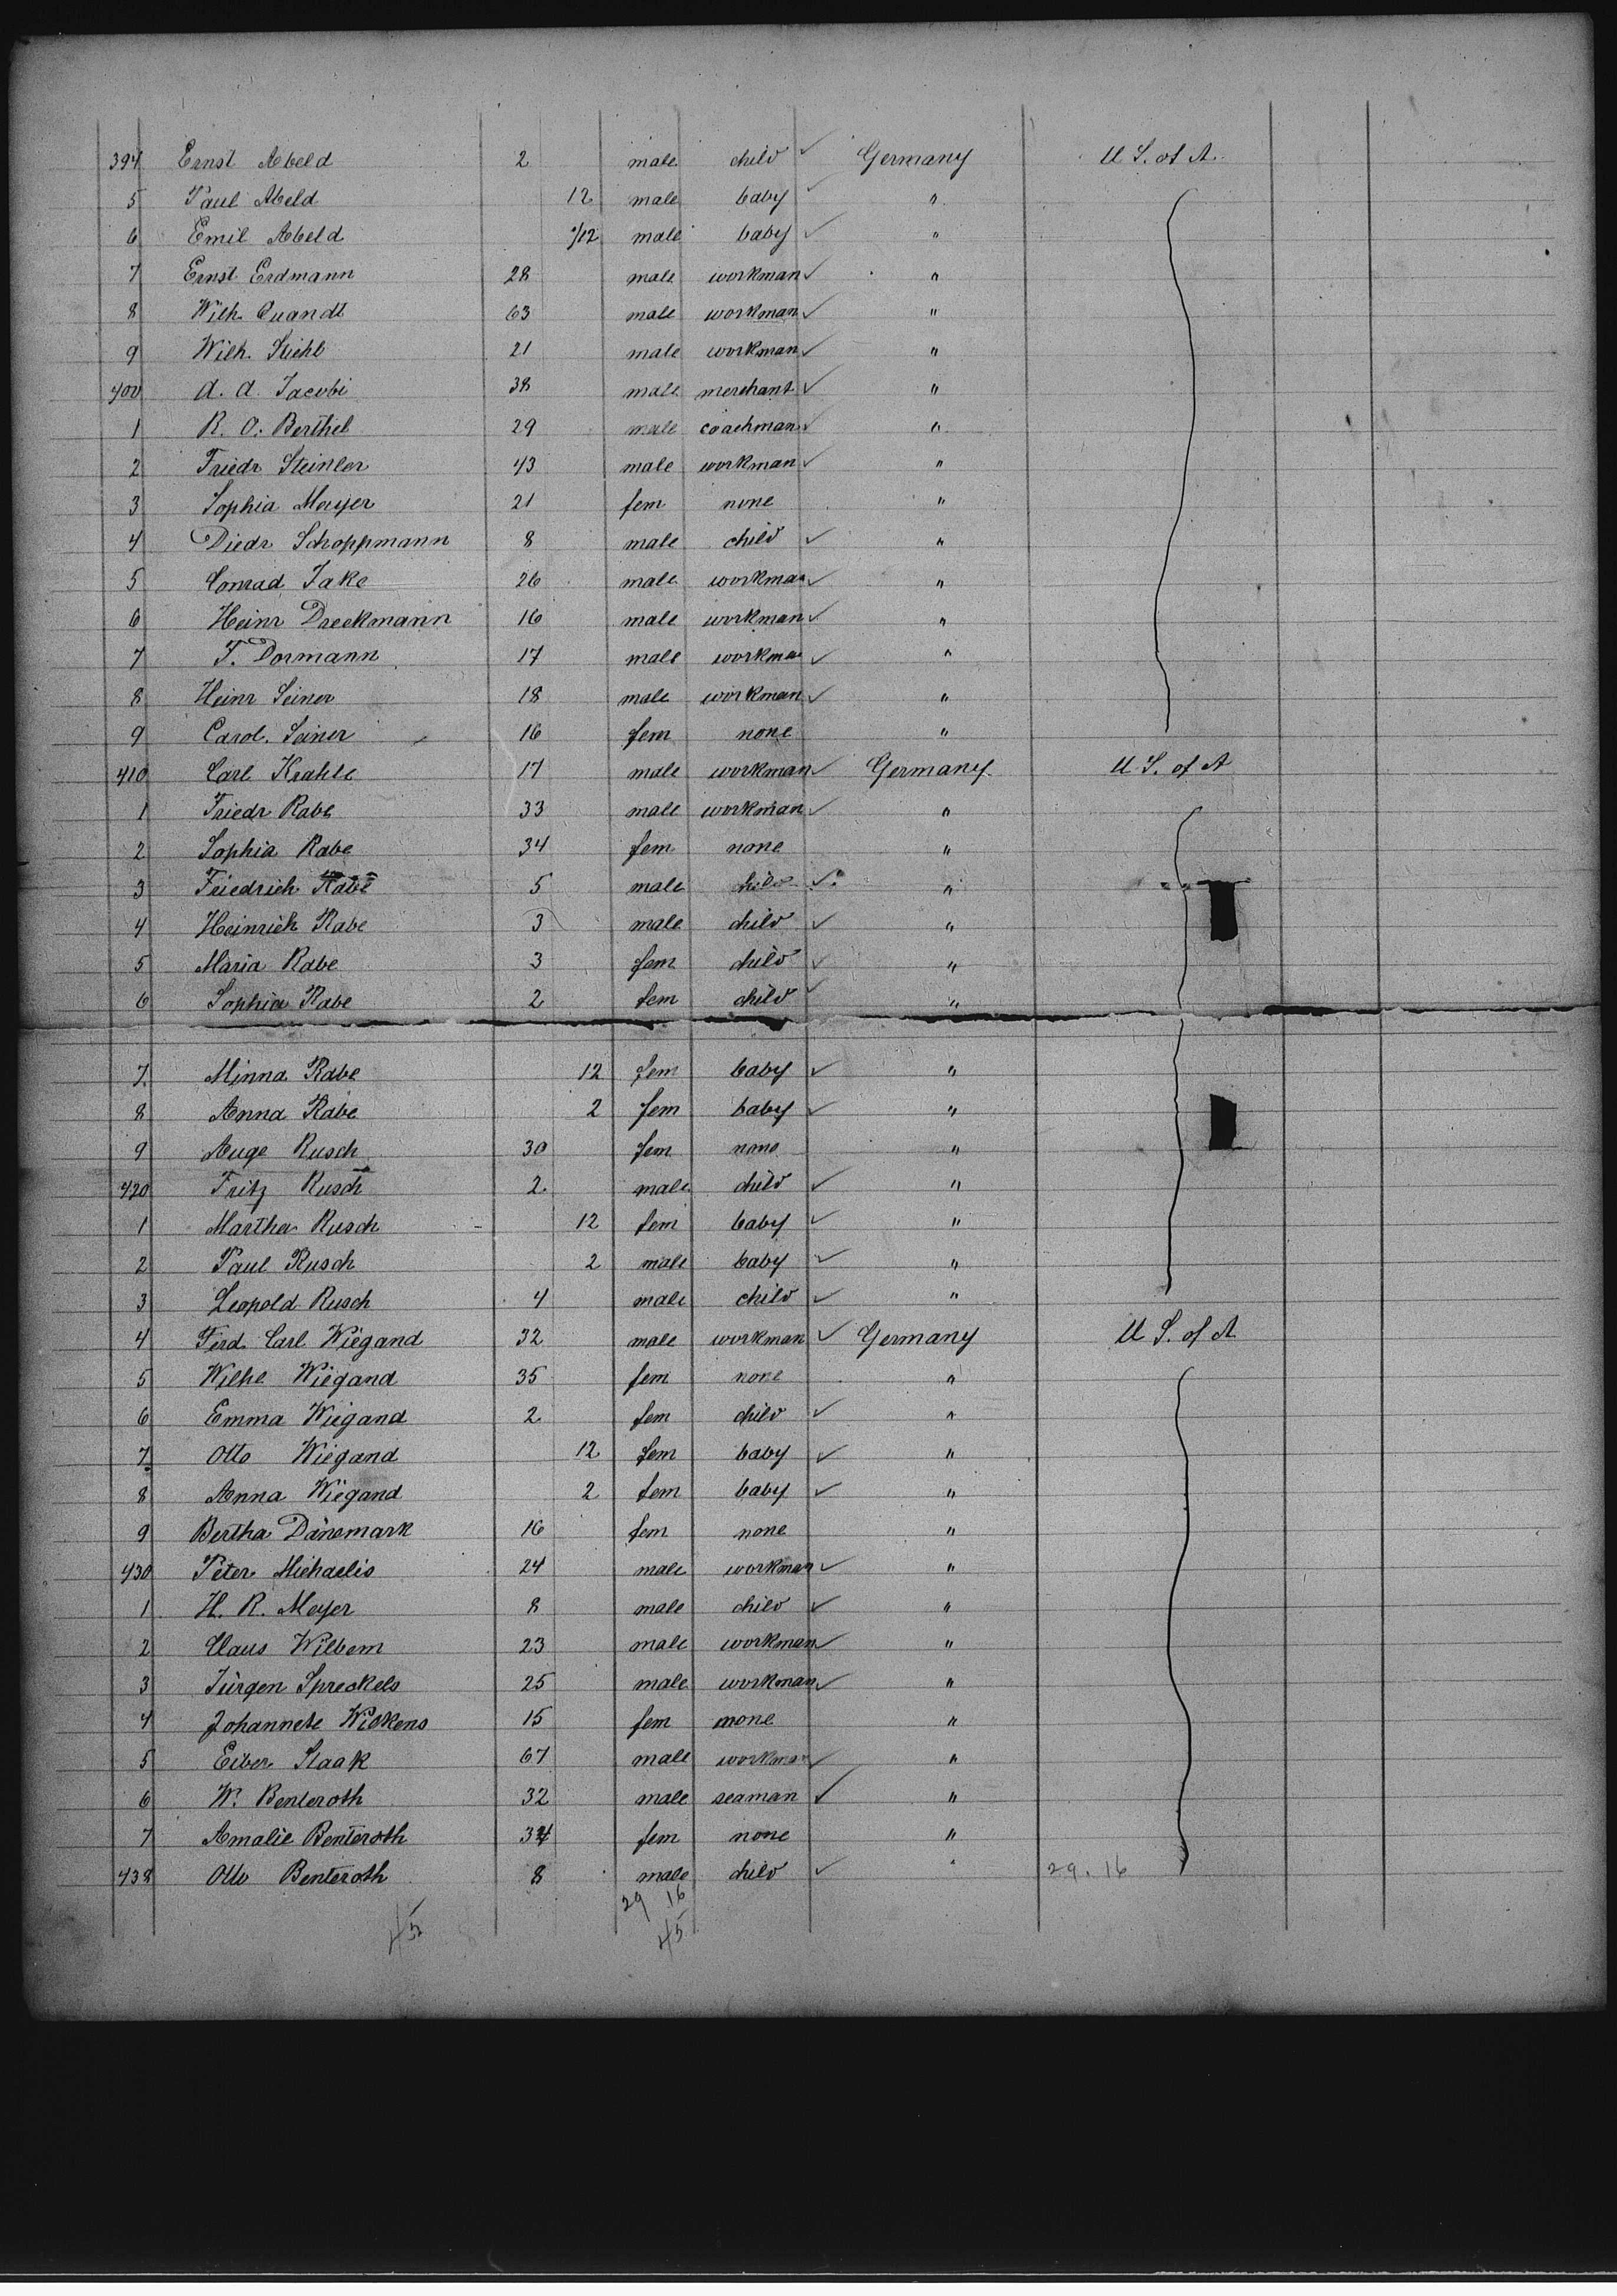 394 Ernst Abeld 2 male child ✓ Germany U S. of A.
5 Paul Abeld 12 male baby ✓ "
6 Emil Abeld /12 male baby ✓ "
7 Ernst Erdmann 28 male workman ✓ "
8 Wilh. Quandt 63 male workman ✓ "
9 Wilh. Stiehl 21 male workman ✓ "
400 A. A. Jacobi 38 male merchant ✓ "
1 R. O. Berthel 29 male coachman ✓ "
2 Friedr Steinler 43 male workman ✓ "
3 Sophia Mayer 21 fem none "
4 Diedr Schoppmann 8 male child ✓ "
5 Conrad Jake 26 male workman ✓ "
6 Heinr Dreekmann 16 male workman ✓ "
7 F. Dormann 17 male workman ✓ "
8 Heinr Seiner 18 male workman ✓ "
9 Carol. Seiner 16 fem none "
410 Carl Krahle 17 male workman ✓ Germany U S. of A
1 Friedr Rabe 33 male workman ✓ "
2 Sophia Rabe 34 fem none "
3 Friedrich Rabe 5 male child ✓ "
4 Heinrich Rabe 3 male child ✓ "
5 Maria Rabe 3 fem child ✓ "
6 Sophia Rabe 2 fem child ✓ "
7 Minna Rabe 12 fem baby ✓ "
8 Anna Rabe 2 fem baby ✓ "
9 Auge Rusch 30 fem none "
420 Fritz Rusch 2 male child ✓ "
1 Martha Rusch 12 fem baby ✓ "
2 Paul Rusch 2 male baby ✓ "
3 Leopold Rusch 4 male child ✓ "
4 Ferd. Carl Wiegand 32 male workman ✓ Germany U S. of A
5 Wilhe Wiegand 35 fem none "
6 Emma Wiegand 2 fem child ✓ "
7 Otto Wiegand 12 fem baby ✓ "
8 Anna Wiegand 2 fem baby ✓ "
9 Bertha Dänemark 16 fem none "
430 Peter Michaelis 24 male workman ✓ "
1 H. R. Meyer 8 male child ✓ "
2 Claus Wilbem 23 male workman ✓ "
3 Jürgen Spreckels 25 male workman ✓ "
4 Johannete Wilkens 15 fem none "
5 Eiber Staak 67 male workman ✓ "
6 W. Benteroth 32 male seaman ✓ "
7 Amalie Benteroth 34 fem none "
438 Otto Benteroth 8 male child ✓ " 29. 16
29 16
45 45